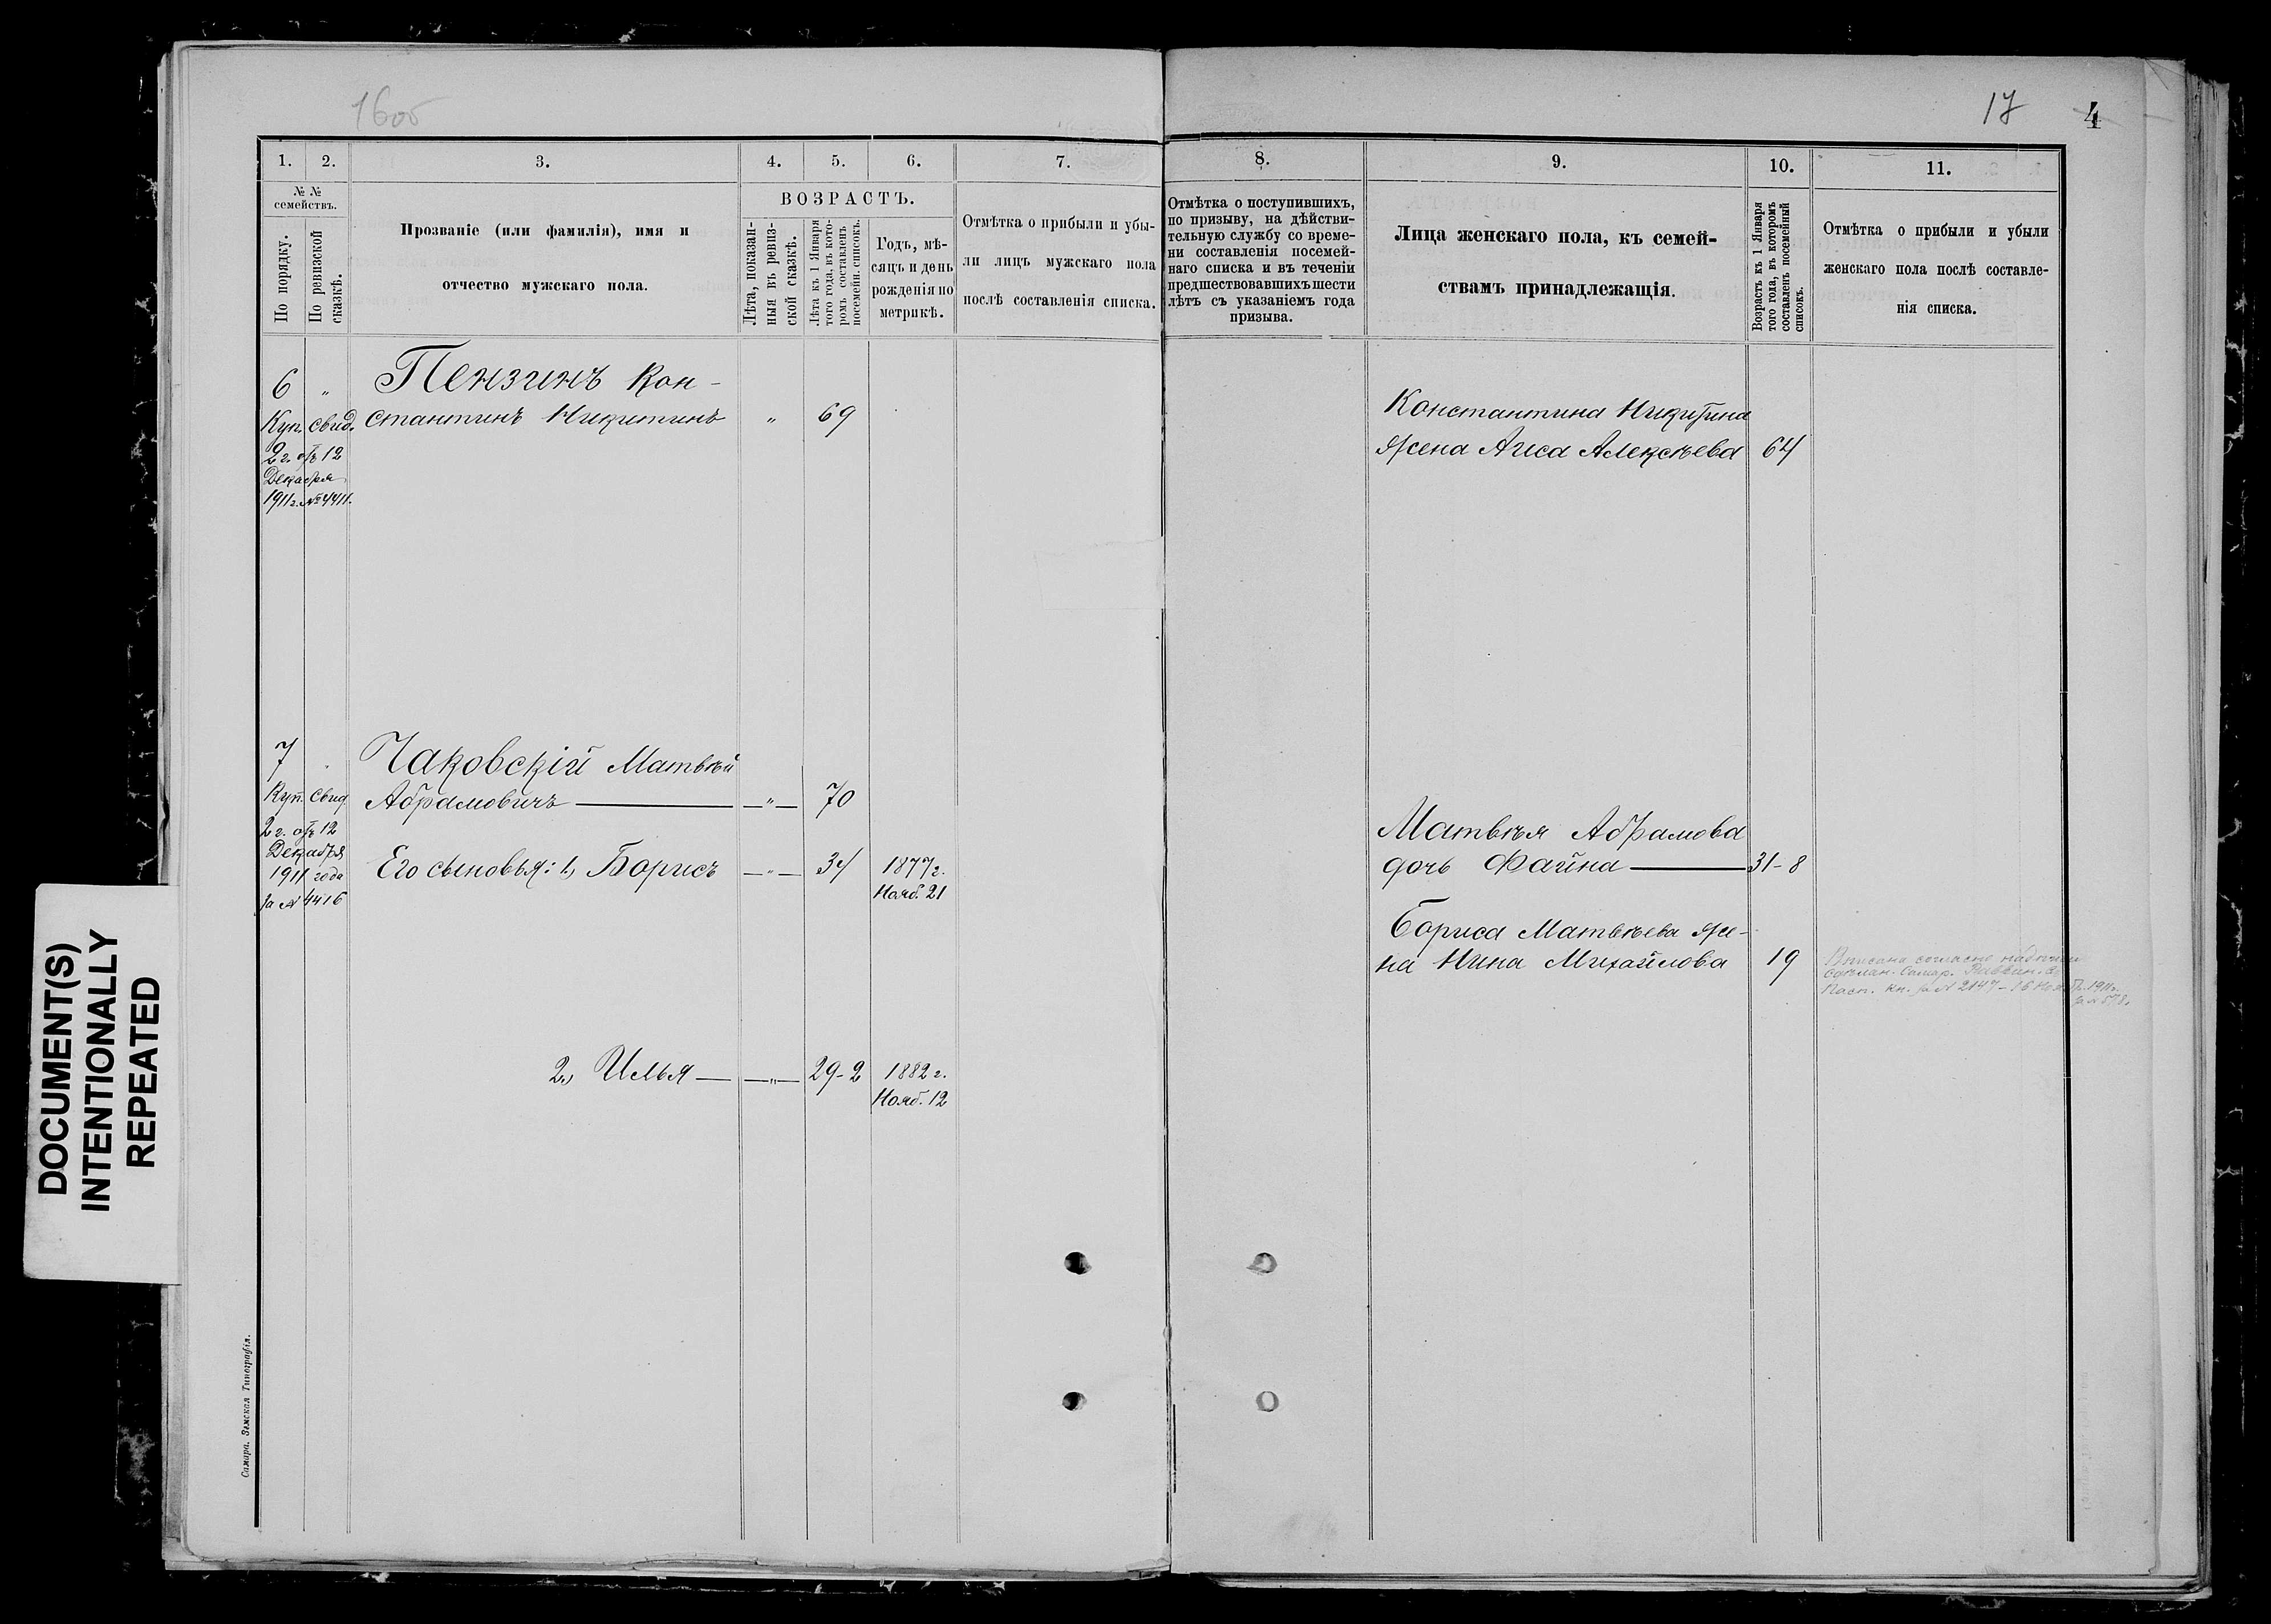 16об
17 4
1. 2. 3. 4. 5. 6. 7.
№ №
семействъ.
По порядку.
По ревизской
сказкѣ.
Прозваніе (или фамилія), имя и
отчество мужскаго пола.
ВОЗРАСТЪ.
Лѣта, показан-
ныя въ ревиз-
ской сказкѣ.
Лѣта къ 1 Января
того года, въ кото-
ромъ составленъ
посемейн. списокъ.
Годъ, мѣ-
сяцъ и день
рожденія по
метрикѣ.
Отмѣтка о прибыли и убы-
ли лицъ мужскаго пола
послѣ составленія списка.
6 „ Пензинъ Кон-
стантинъ Никитинъ „ 69
Куп. свид.
2 г. отъ 12
Декабря
1911 г. № 4411.
7 „ Чаковскій Матвѣй
Абрамовичъ — „ — 70
Куп. свид.
2 г. отъ 12
Декабря
1911 года
за № 4416
Его сыновья: 1, Борисъ — „ — 34 1877 г.
Нояб. 21
2, Илья — — „ — 29-2 1882 г.
Нояб. 12
Самара. Земская Типографія.
8. 9. 10. 11.
Отмѣтка о поступившихъ,
по призыву, на дѣйстви-
тельную службу со време-
ни составленія посемей-
наго списка и въ теченіи
предшествовавшихъ шести
лѣтъ съ указаніемъ года
призыва.
Лица женскаго пола, къ семей-
ствамъ принадлежащія.
Возрастъ къ 1 Января
того года, въ которомъ
составленъ посемейный
списокъ.
Отмѣтка о прибыли и убыли
женскаго пола послѣ составле-
нія списка.
Константина Никитина
жена Аиса Алексѣева 64
Матвѣя Абрамова
дочь Файна — 31-8
Бориса Матвѣева же-
на Нина Михайлова 19
Вписана согласно
Самар. Раввин.
Пасп. кн. за № 2147 - 16 Нояб. 1911 г.
за № 578.
DOCUMENT(S)
INTENTIONALLY
REPEATED